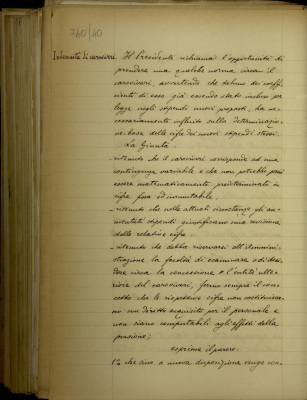 740/40
Indennità di caroviveri. Il Presidente richiama l'opportunità di
prendere una qualche norma circa il
caroviveri, avvertendo che taluno dei coeffi-
cienti di esso, già essendo stato incluso per
legge negli stipendi nuovi proposti, ha ne-
cessariamente influito sulla determinazio-
ne base delle cifre dei nuovi stipendi stessi.
La Giunta,
- ritenuto che il caroviveri corrisponde ad una
contingenza variabile e che non potrebbe però
essere matematicamente predeterminato in
cifra fissa ed immutabile;
- ritenuto che nelle attuali circostanze gli au-
mentati stipendi giustificano una revisione
delle relative cifre;
- ritenuto che debba riservarsi all'Ammini-
strazione la facoltà di esaminare e di deci-
dere circa la concessione e l'entità ulte-
riore del caroviveri, fermo sempre il con-
cetto che le rispettive cifre non costituisca-
no un diritto acquisito per il personale e
non siano computabili agli effetti della
pensione;
esprime il parere:
1° che sino a nuova disposizione venga con-